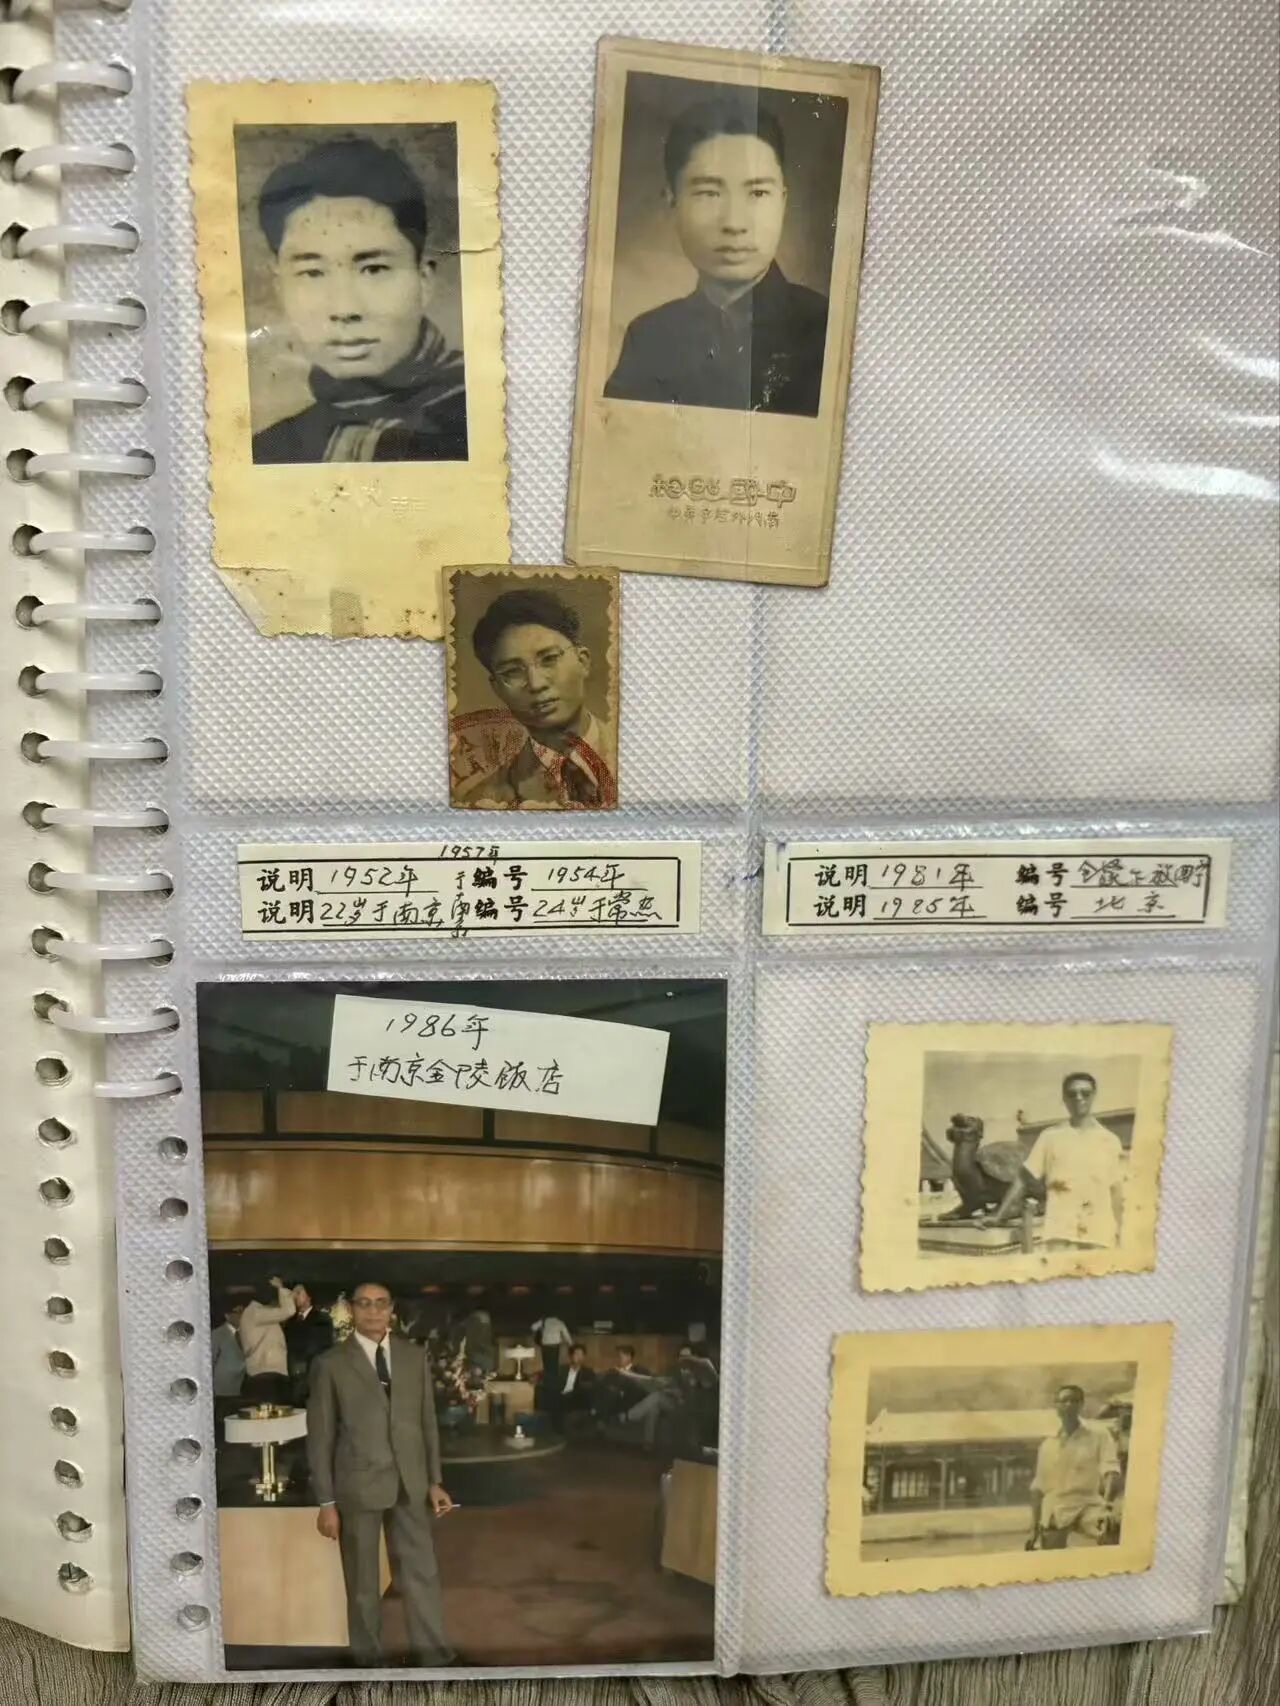 1957年
说明 1952年 于 编号 1954年
说明 22岁于南京 南京 编号 24岁于常熟
说明 1981年 编号
说明 1985年 编号 北京
1986年
于南京金陵饭店
中國